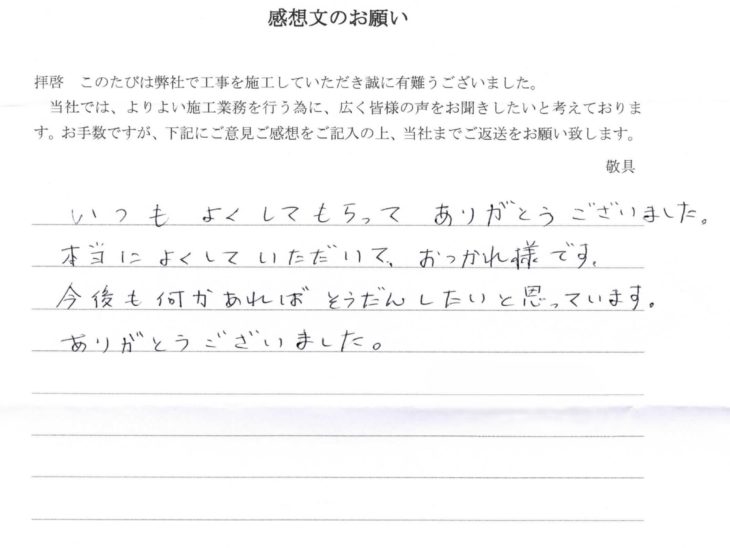 感想文のお願い
拝啓　このたびは弊社で工事を施工していただき誠に有難うございました。
　当社では、よりよい施工業務を行う為に、広く皆様の声をお聞きしたいと考えておりま
す。お手数ですが、下記にご意見ご感想をご記入の上、当社までご返送をお願い致します。
敬具
いつも よくしてもらって ありがとうございました。
本当によくしていただいて、おつかれ様です。
今後も何かあればそうだんしたいと思っています。
ありがとうございました。